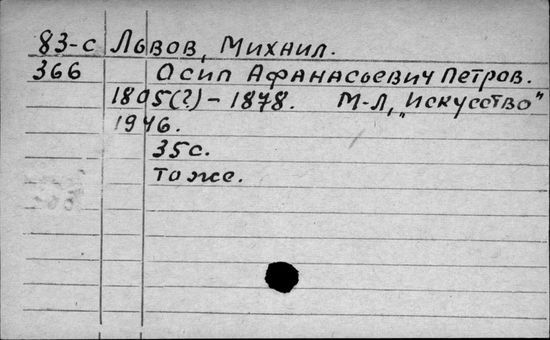 83-с Львов, Михаил.
366 Осип Афанасьевич Петров.
1805(?) – 1878. М-Л, „Искусство"
1946.
35с.
То же.